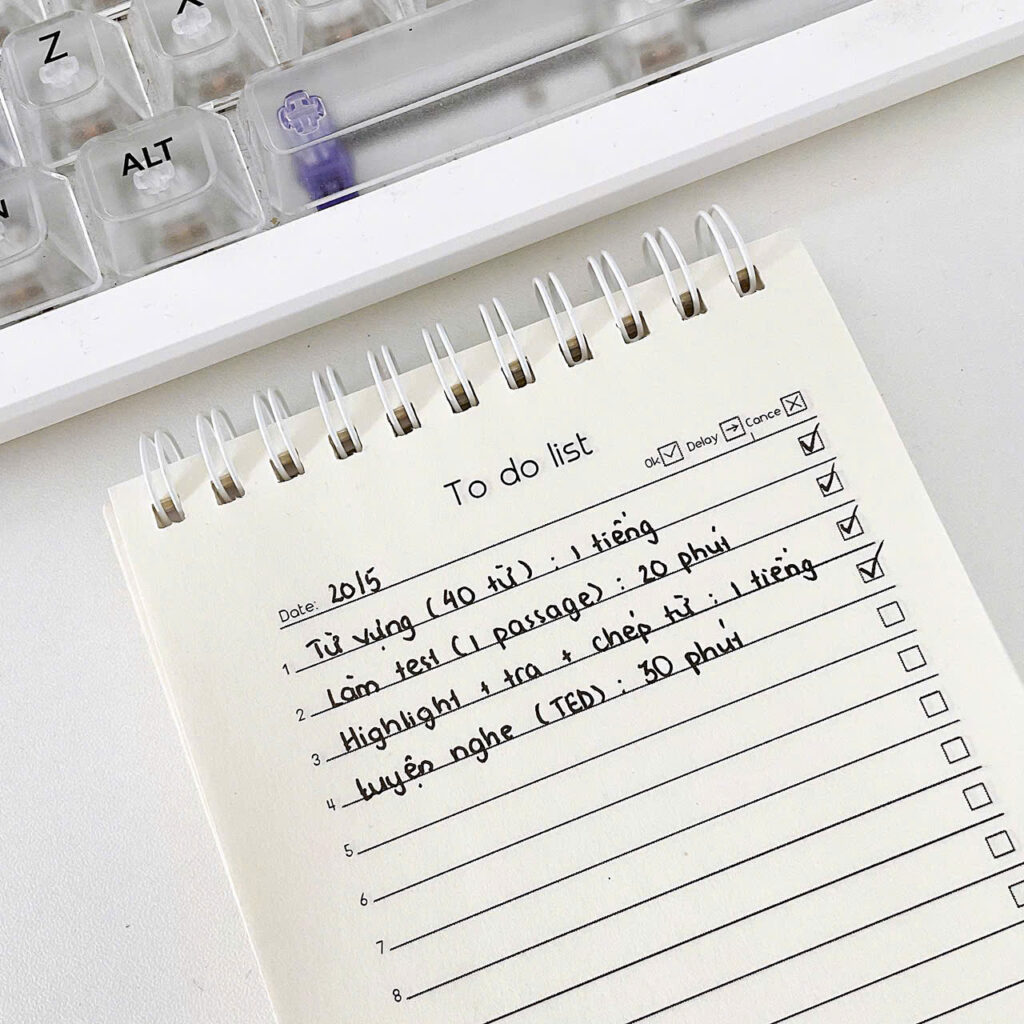 Z
X
ALT
N
To do list
Ok Delay Cance
Date: 20/5
1 Từ vựng (40 từ) : 1 tiếng
2 Làm test (1 passage) : 20 phút
3 Highlight + tra + chép từ : 1 tiếng
4 Luyện nghe (TED) : 30 phút
5
6
7
8